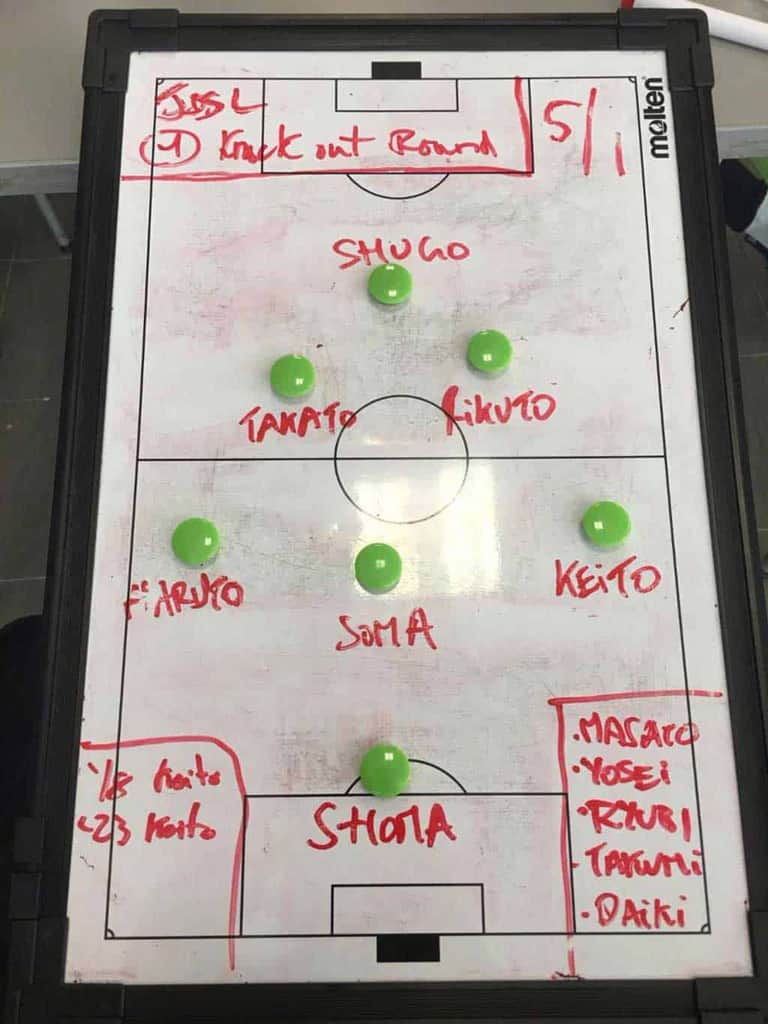 JSSL
④ Knock out Round
5/1
molten
SHUGO
TAKATO
RIKUTO
HARUTO
SOMA
KEITO
SHOMA
Keito
23 Keito
·MASATO
·YOSEI
·RYUBI
·TAKUMI
·DAIKI